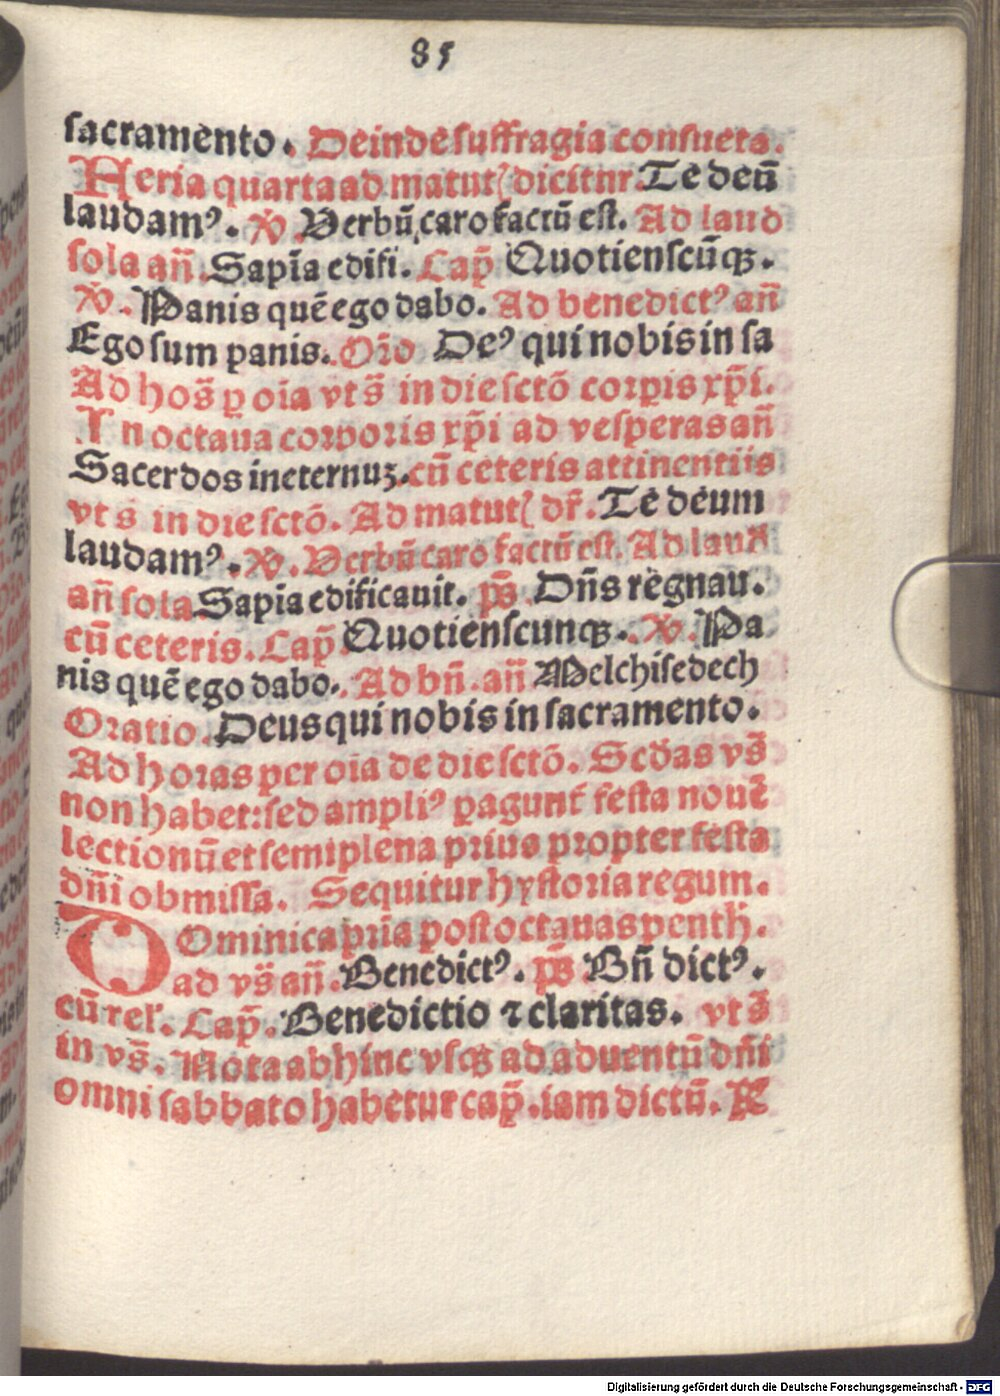 85
sacramento. Deinde suffragia consueta.
Feria quarta ad matutꝭ dicitur. Te deū
laudamꝰ. ℣. Verbū caro factū est. Ad laud
sola an̄. Sapīa edifi. Cap̄ Quotienscūqꝫ.
℣. Panis quē ego dabo. Ad benedictꝰ an̄
Ego sum panis. Orō Deꝰ qui nobis in sa
Ad hos̄ ꝑ oīa vt s̄ in die sctō corpis xp̄i.
In octaua corporis xp̄i ad vesperas an̄
Sacerdos in eternuꝫ. cū ceteris attinentiis
vt s̄ in die sctō. Ad matutꝭ dr̄. Te deum
laudamꝰ. ℣. Verbū caro factū est. Ad laud
an̄ sola Sapīa edificauit. ps̄ Dn̄s regnau.
cū ceteris. Cap̄ Quotienscunqꝫ. ℣. Pa
nis quē ego dabo. Ad bn̄. an̄ Melchisedech
Oratio. Deus qui nobis in sacramento.
Ad horas per oīa de die sctō. Scd̄as vs̄
non habet: sed ampliꝰ ꝑagunt̄ festa nouē
lectionū et semiplena prius propter festa
dn̄i obmissa. Sequitur hystoria regum.
Dominica pr̄ia post octauas penth̄.
ad vs̄ an̄. Benedictꝰ. ps̄ Bn̄dictꝰ.
cū rel̄. Cap̄. Benedictio ⁊ claritas. vt s̄
in vs̄. Nota abhinc vsqꝫ ad aduentū dn̄i
omni sabbato habetur cap̄. iam dictū. ℟
Digitalisierung gefördert durch die Deutsche Forschungsgemeinschaft - DFG